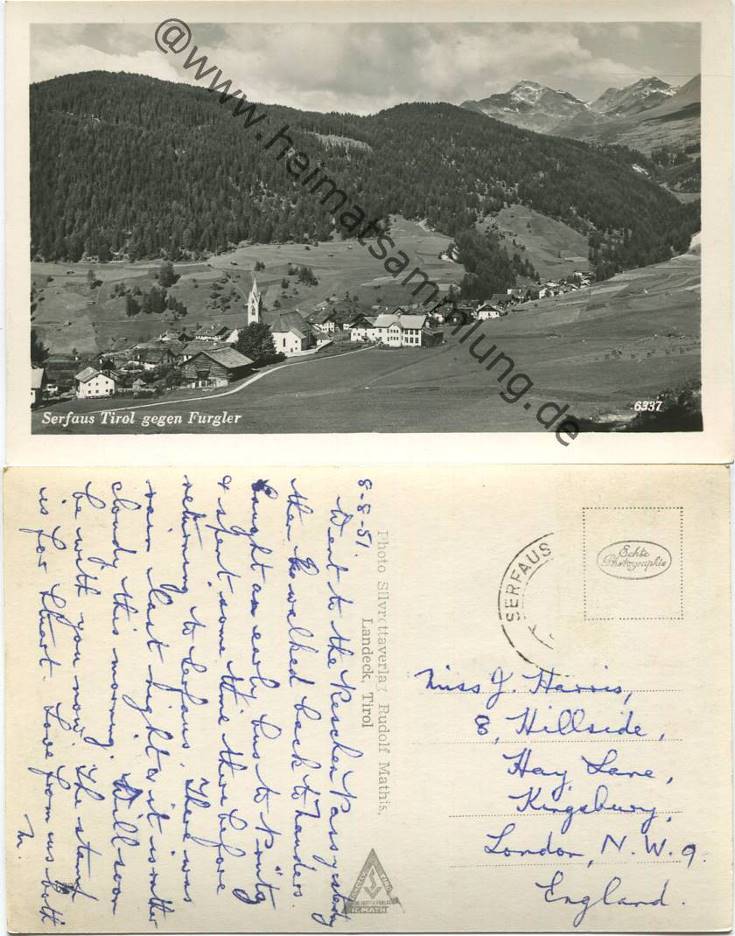 @www.heimatsammlung.de
Serfaus Tirol gegen Furgler
6337
8-8-51.
Went to the Reschen Pass yesterday
then walked back to Nauders.
Caught an early bus to Prutz
& spent some time there before
returning to Serfaus. There was
rain last night & it is rather
cloudy this morning. Will soon
be with you now. The stamp
is for Stuart. Love from us both
Photo Silvrettaverlag Rudolf Mathis,
Landeck, Tirol
SERFAUS
Echte
Photographie
Miss J. Harris,
8, Hillside,
Hay Lane,
Kingsbury,
London, N.W.9.
England.